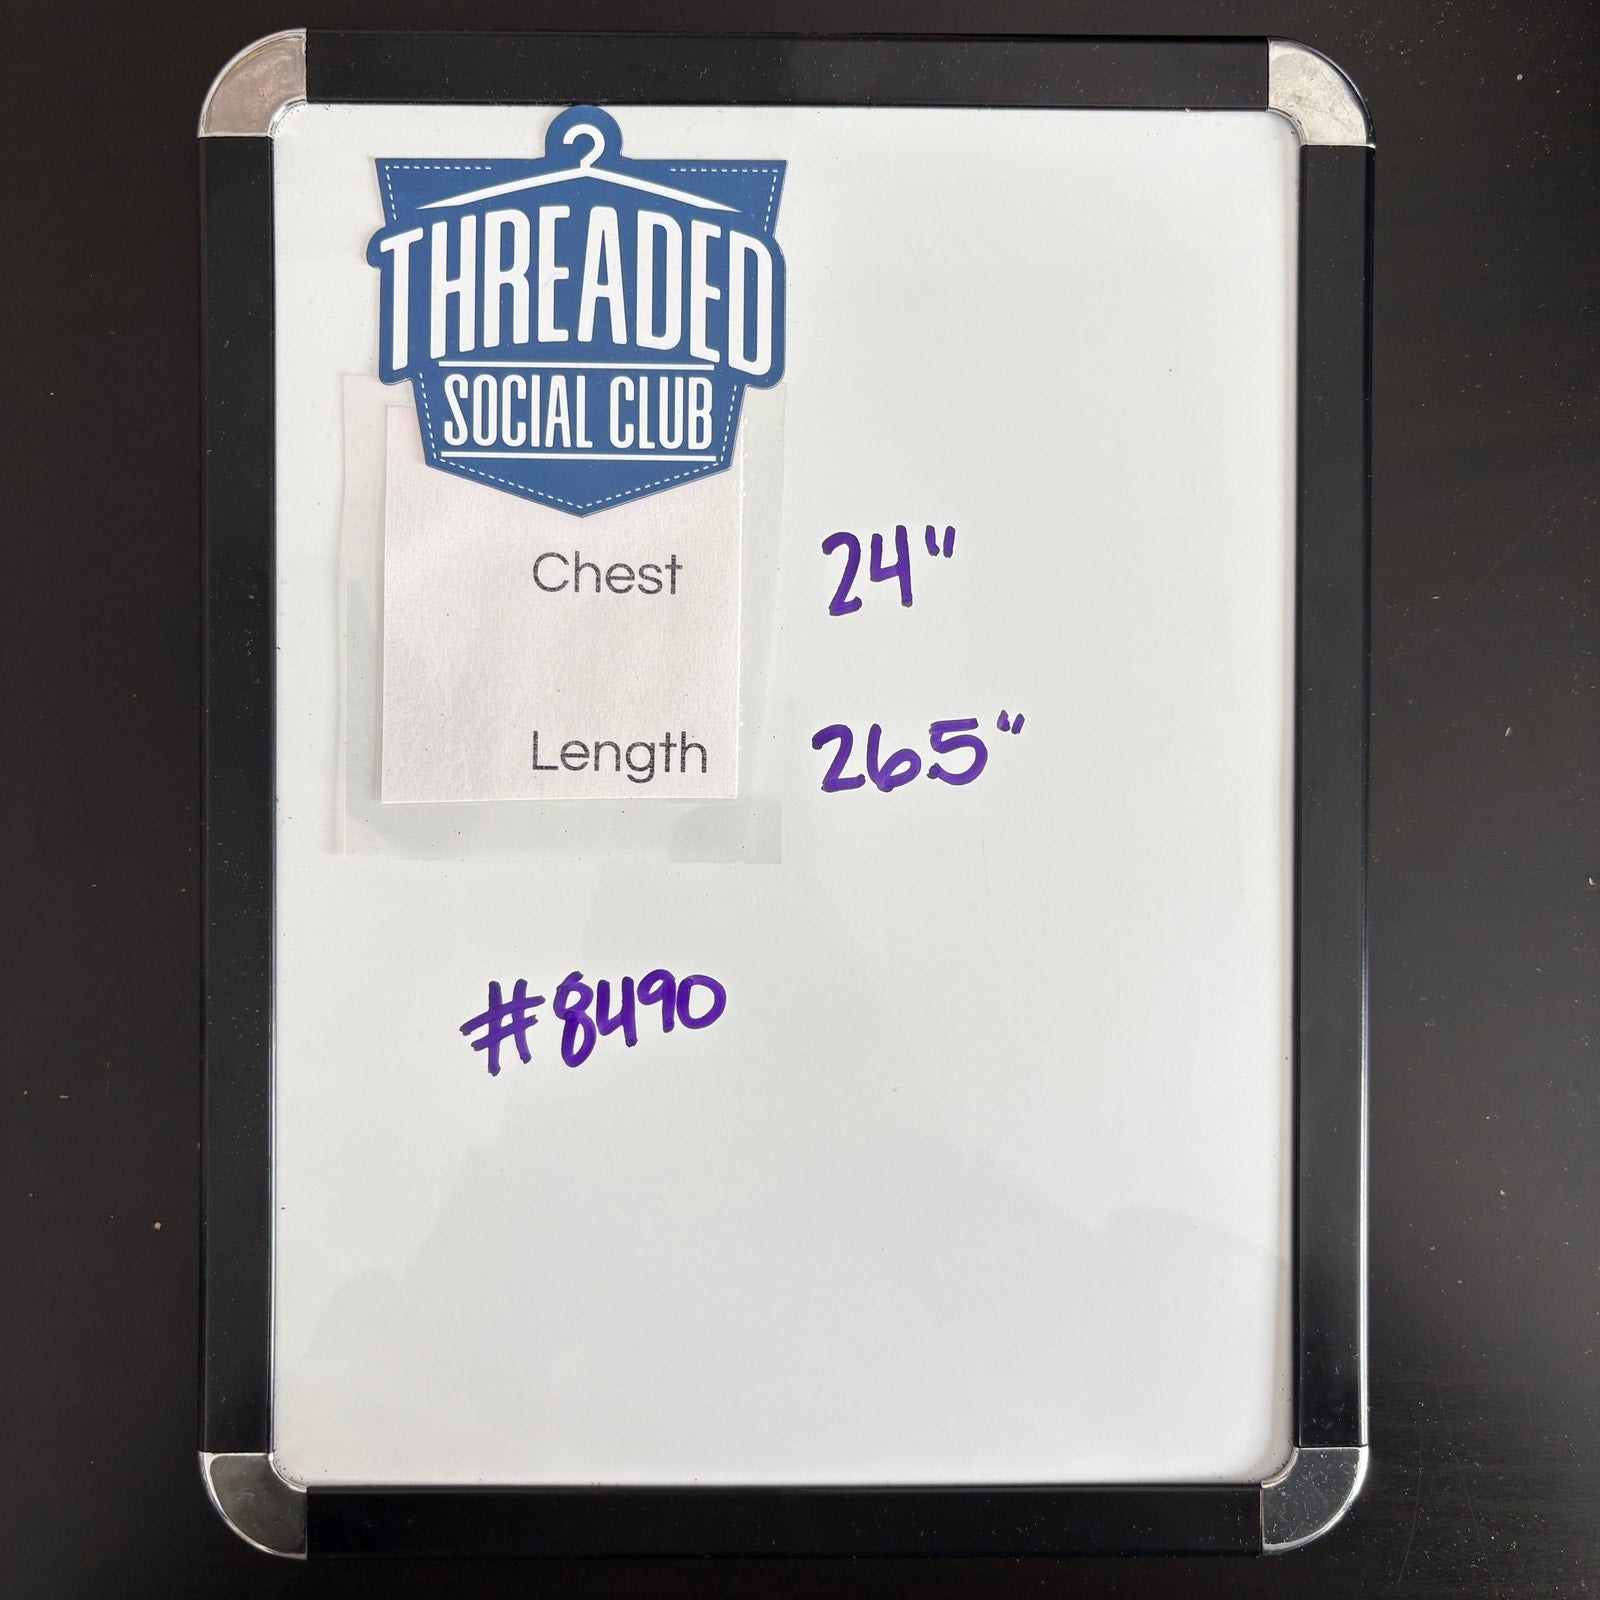 THREADED
SOCIAL CLUB
Chest 24"
Length 26.5"
#8490